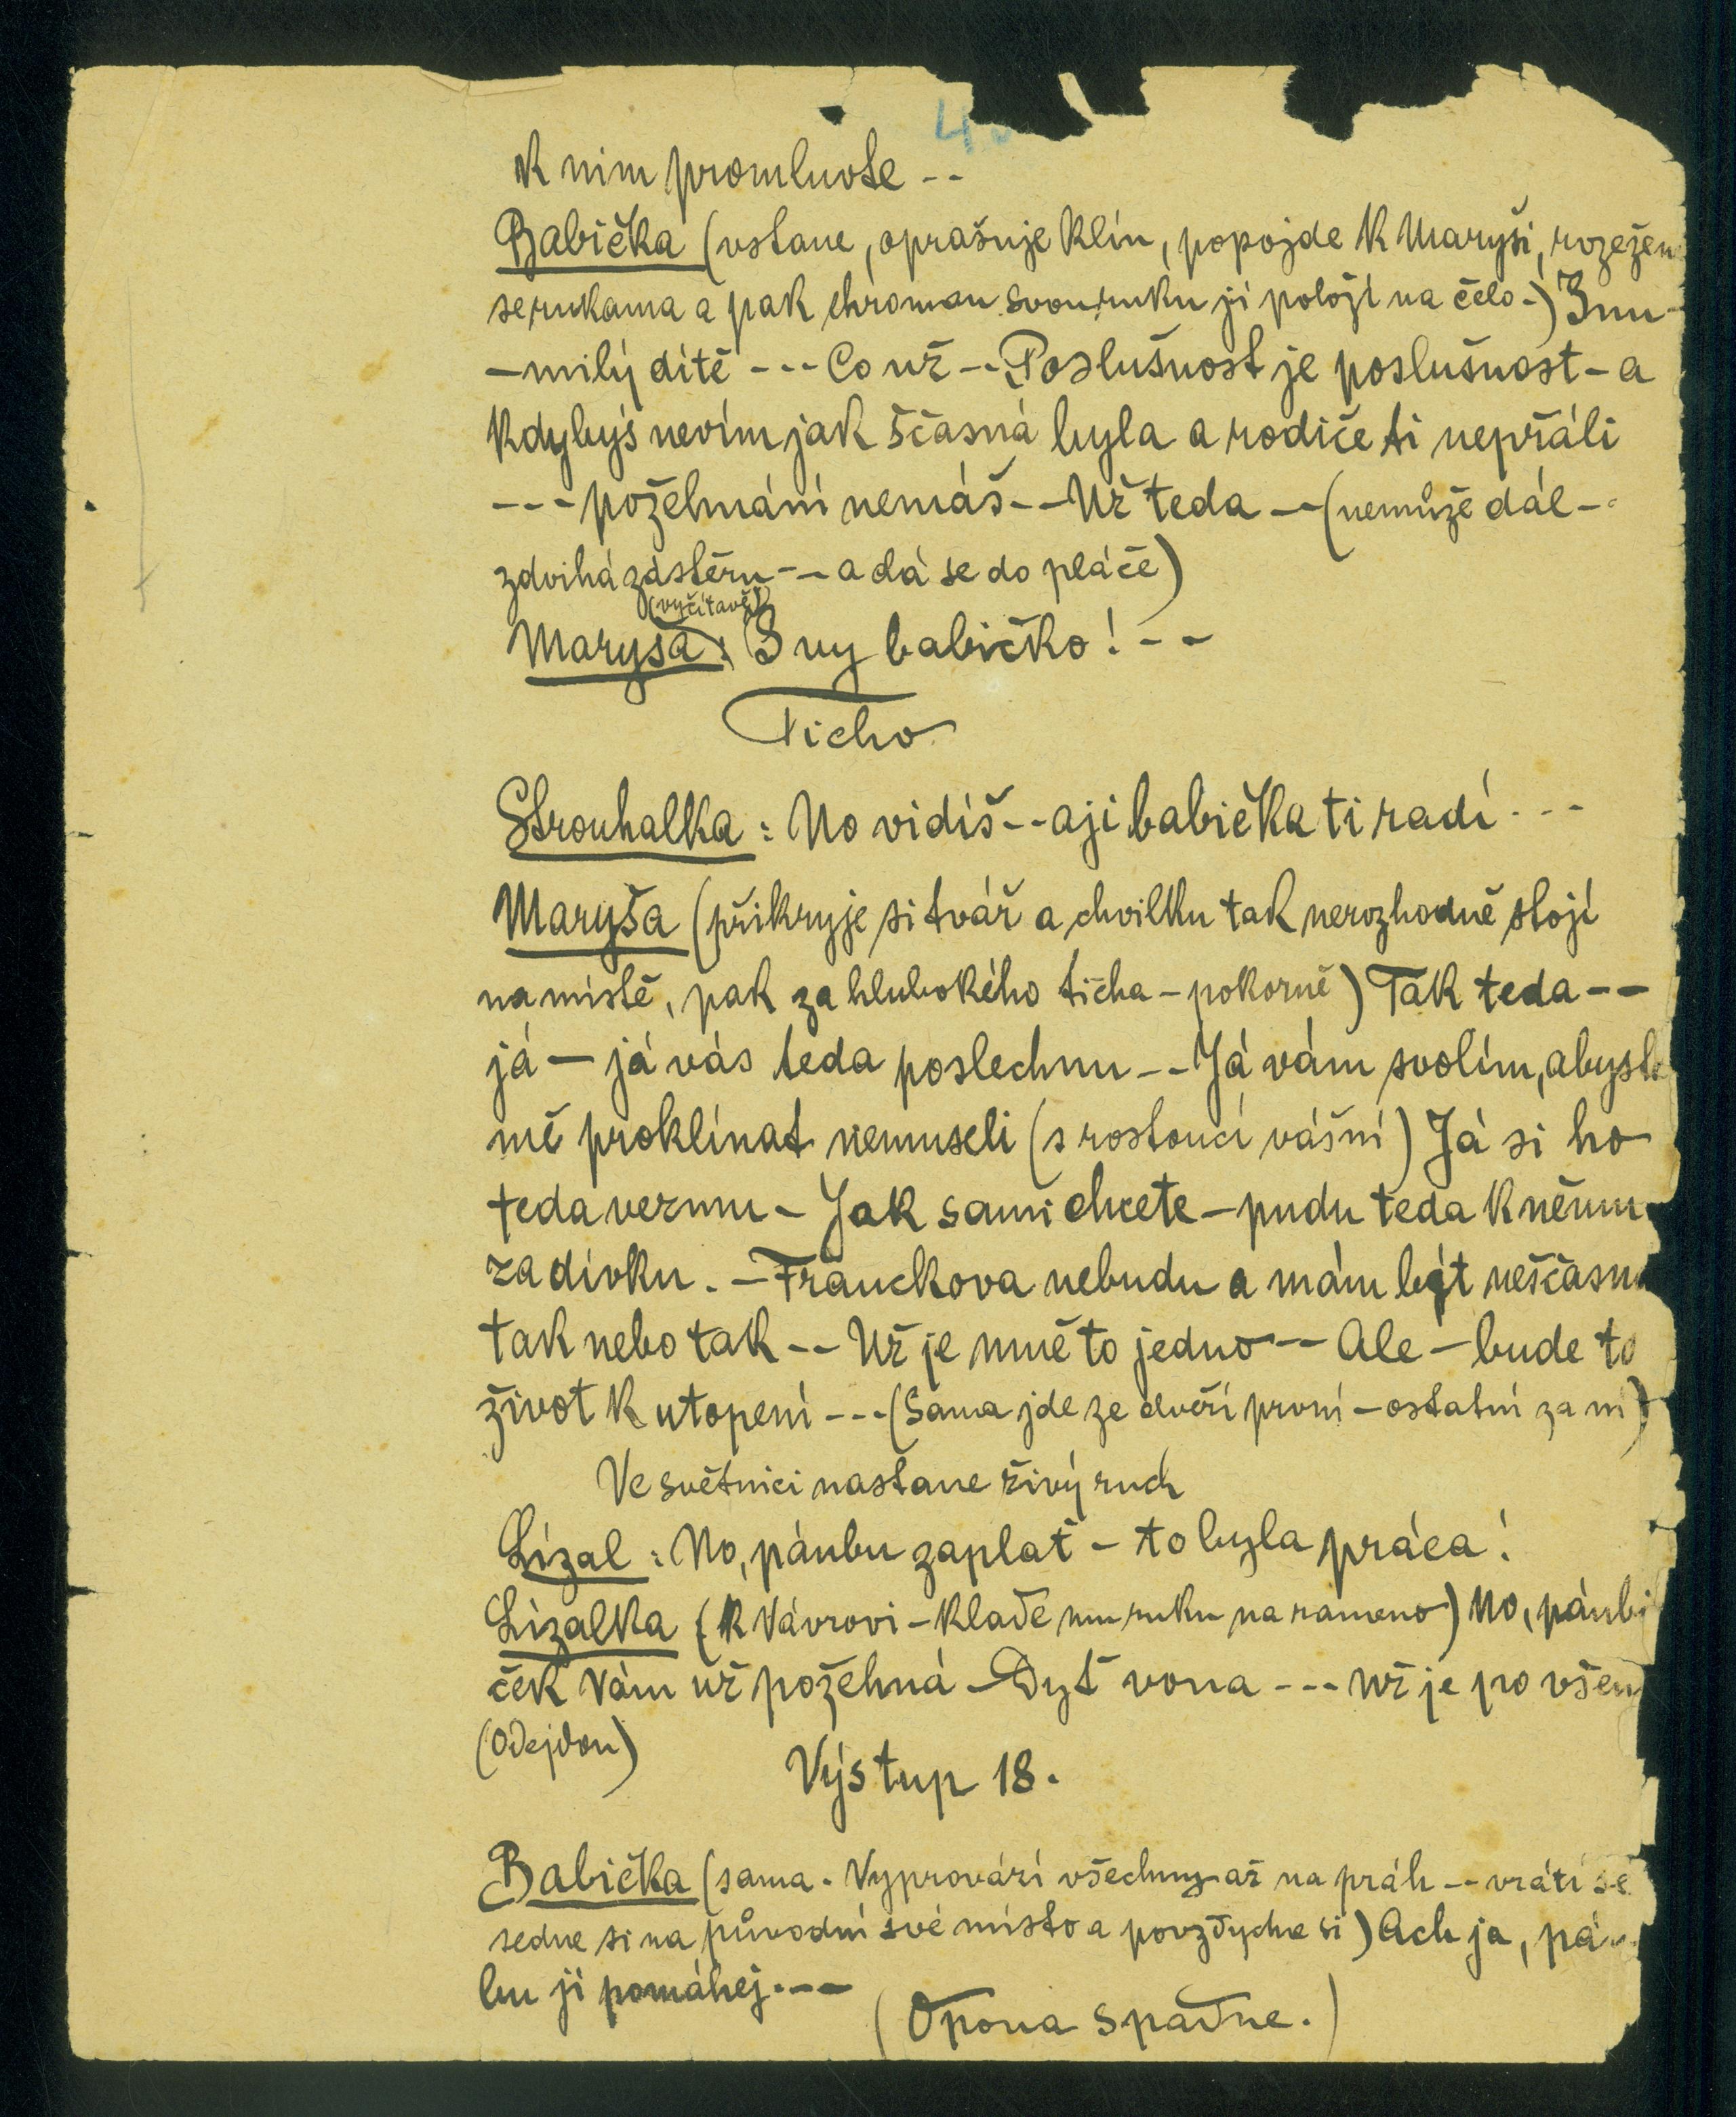 4
k nim promluvte --
Babička (vstane, oprašuje klín, popojde k Maryši, rozežene
se rukama a pak chromou svou ruku jí položí na čelo -) Inu -
- milý dítě --- Co už -- Poslušnost je poslušnost - a
kdybys nevím jak ščasná byla a rodiče ti nepřáli
--- požehnání nemáš -- Už teda -- (nemůže dál --
zdvihá zástěru -- a dá se do pláče)
(vyčítavě)
Maryša: I vy babičko! --
Ticho
Strouhalka: No vidíš -- aji babička ti radí ---
Maryša (přikryje si tvář a chvilku tak nerozhodně stojí
na místě, pak za hlubokého ticha - pokorně) Tak teda --
já - já vás teda poslechnu -- Já vám svolím, abyste
mě proklínat nemuseli (s rostoucí vášní) Já si ho
teda vezmu - Jak sami chcete - pudu teda k němu
za dívku. - Franckova nebudu a mám být neščasná
tak nebo tak -- Už je mně to jedno -- Ale - bude to
život k utopení --- (Sama jde ze dveří první - ostatní za ní)
Ve světnici nastane živý ruch
Lízal: No, pánbu zaplať - to byla práca!
Lízalka (k Vávrovi - klade mu ruku na rameno) No, pánbí
ček Vám už požehná - Dyť vona --- už je po všem
(Odejdou)
Výstup 18.
Babička (sama. Vyprovází všechny až na práh -- vrátí se
sedne si na původní své místo a povzdychne si) Ach ja, pán
bu jí pomáhej. --
(Opona spadne.)